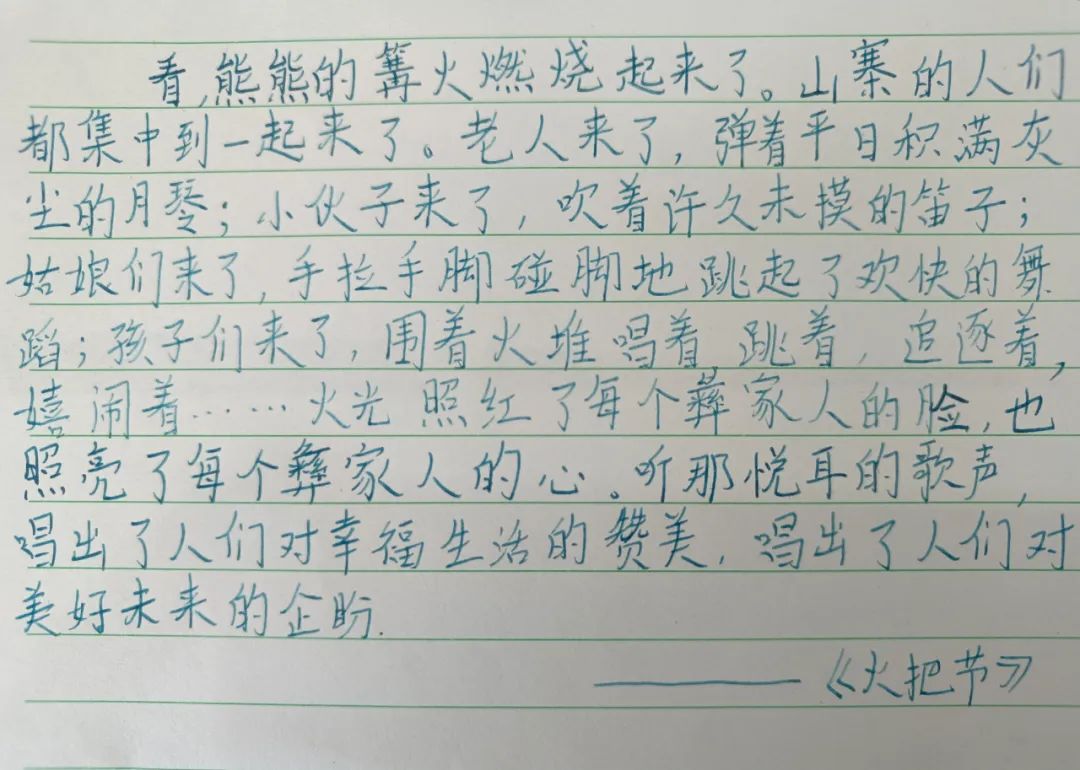 看,熊熊的篝火燃烧起来了。山寨的人们
都集中到一起来了。老人来了,弹着平日积满灰
尘的月琴;小伙子来了,吹着许久未摸的笛子;
姑娘们来了,手拉手脚碰脚地跳起了欢快的舞
蹈;孩子们来了,围着火堆唱着,跳着,追逐着,
嬉闹着……火光照红了每个彝家人的脸,也
照亮了每个彝家人的心。听那悦耳的歌声,
唱出了人们对幸福生活的赞美,唱出了人们对
美好未来的企盼.
——《火把节》